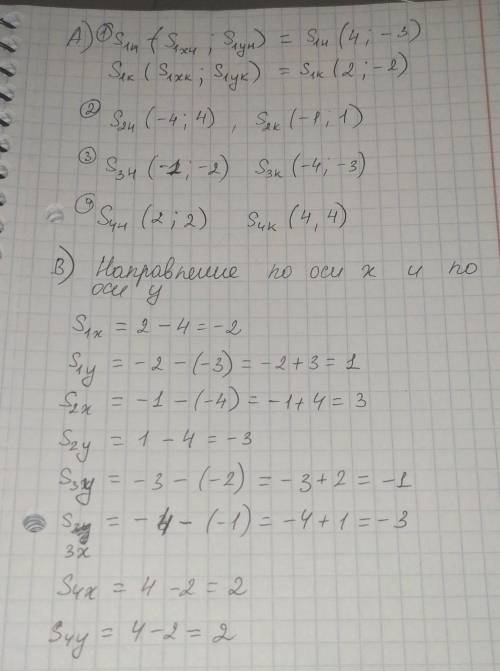 А) ① S₁ₙ (S₁ₓₙ ; S₁уₙ) = S₁ₙ (4 ; -3)
S₁ₖ (S₁ₓₖ ; S₁уₖ) = S₁ₖ (2 ; -2)
② S₂ₙ (-4 ; 4) , S₂ₖ (-1 ; 1)
③ S₃ₙ (-1 ; -2) S₃ₖ (-4 ; -3)
S₄ₙ (2 ; 2) S₄ₖ (4, 4)
В) Направление по оси х и по
оси у
S₁ₓ = 2 - 4 = -2
S₁y = -2 - (-3) = -2 + 3 = 1
S₂ₓ = -1 - (-4) = -1 + 4 = 3
S₂y = 1 - 4 = -3
S₃y = -3 - (-2) = -3 + 2 = -1
S = -4 - (-1) = -4 + 1 = -3
3x
S₄ₓ = 4 - 2 = 2
S₄y = 4 - 2 = 2